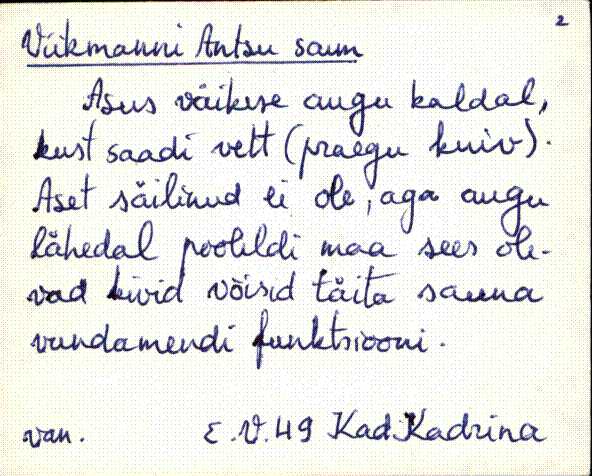 2
Viikmanni Antsu saun
Asus väikese augu kaldal,
kust saadi vett (praegu kuiv).
Aset säilinud ei ole, aga augu
lähedal pooleldi maa sees ole-
vad kivid võisid täita sauna
vundamendi funktsiooni.
van. E.V.49 Kad. Kadrina